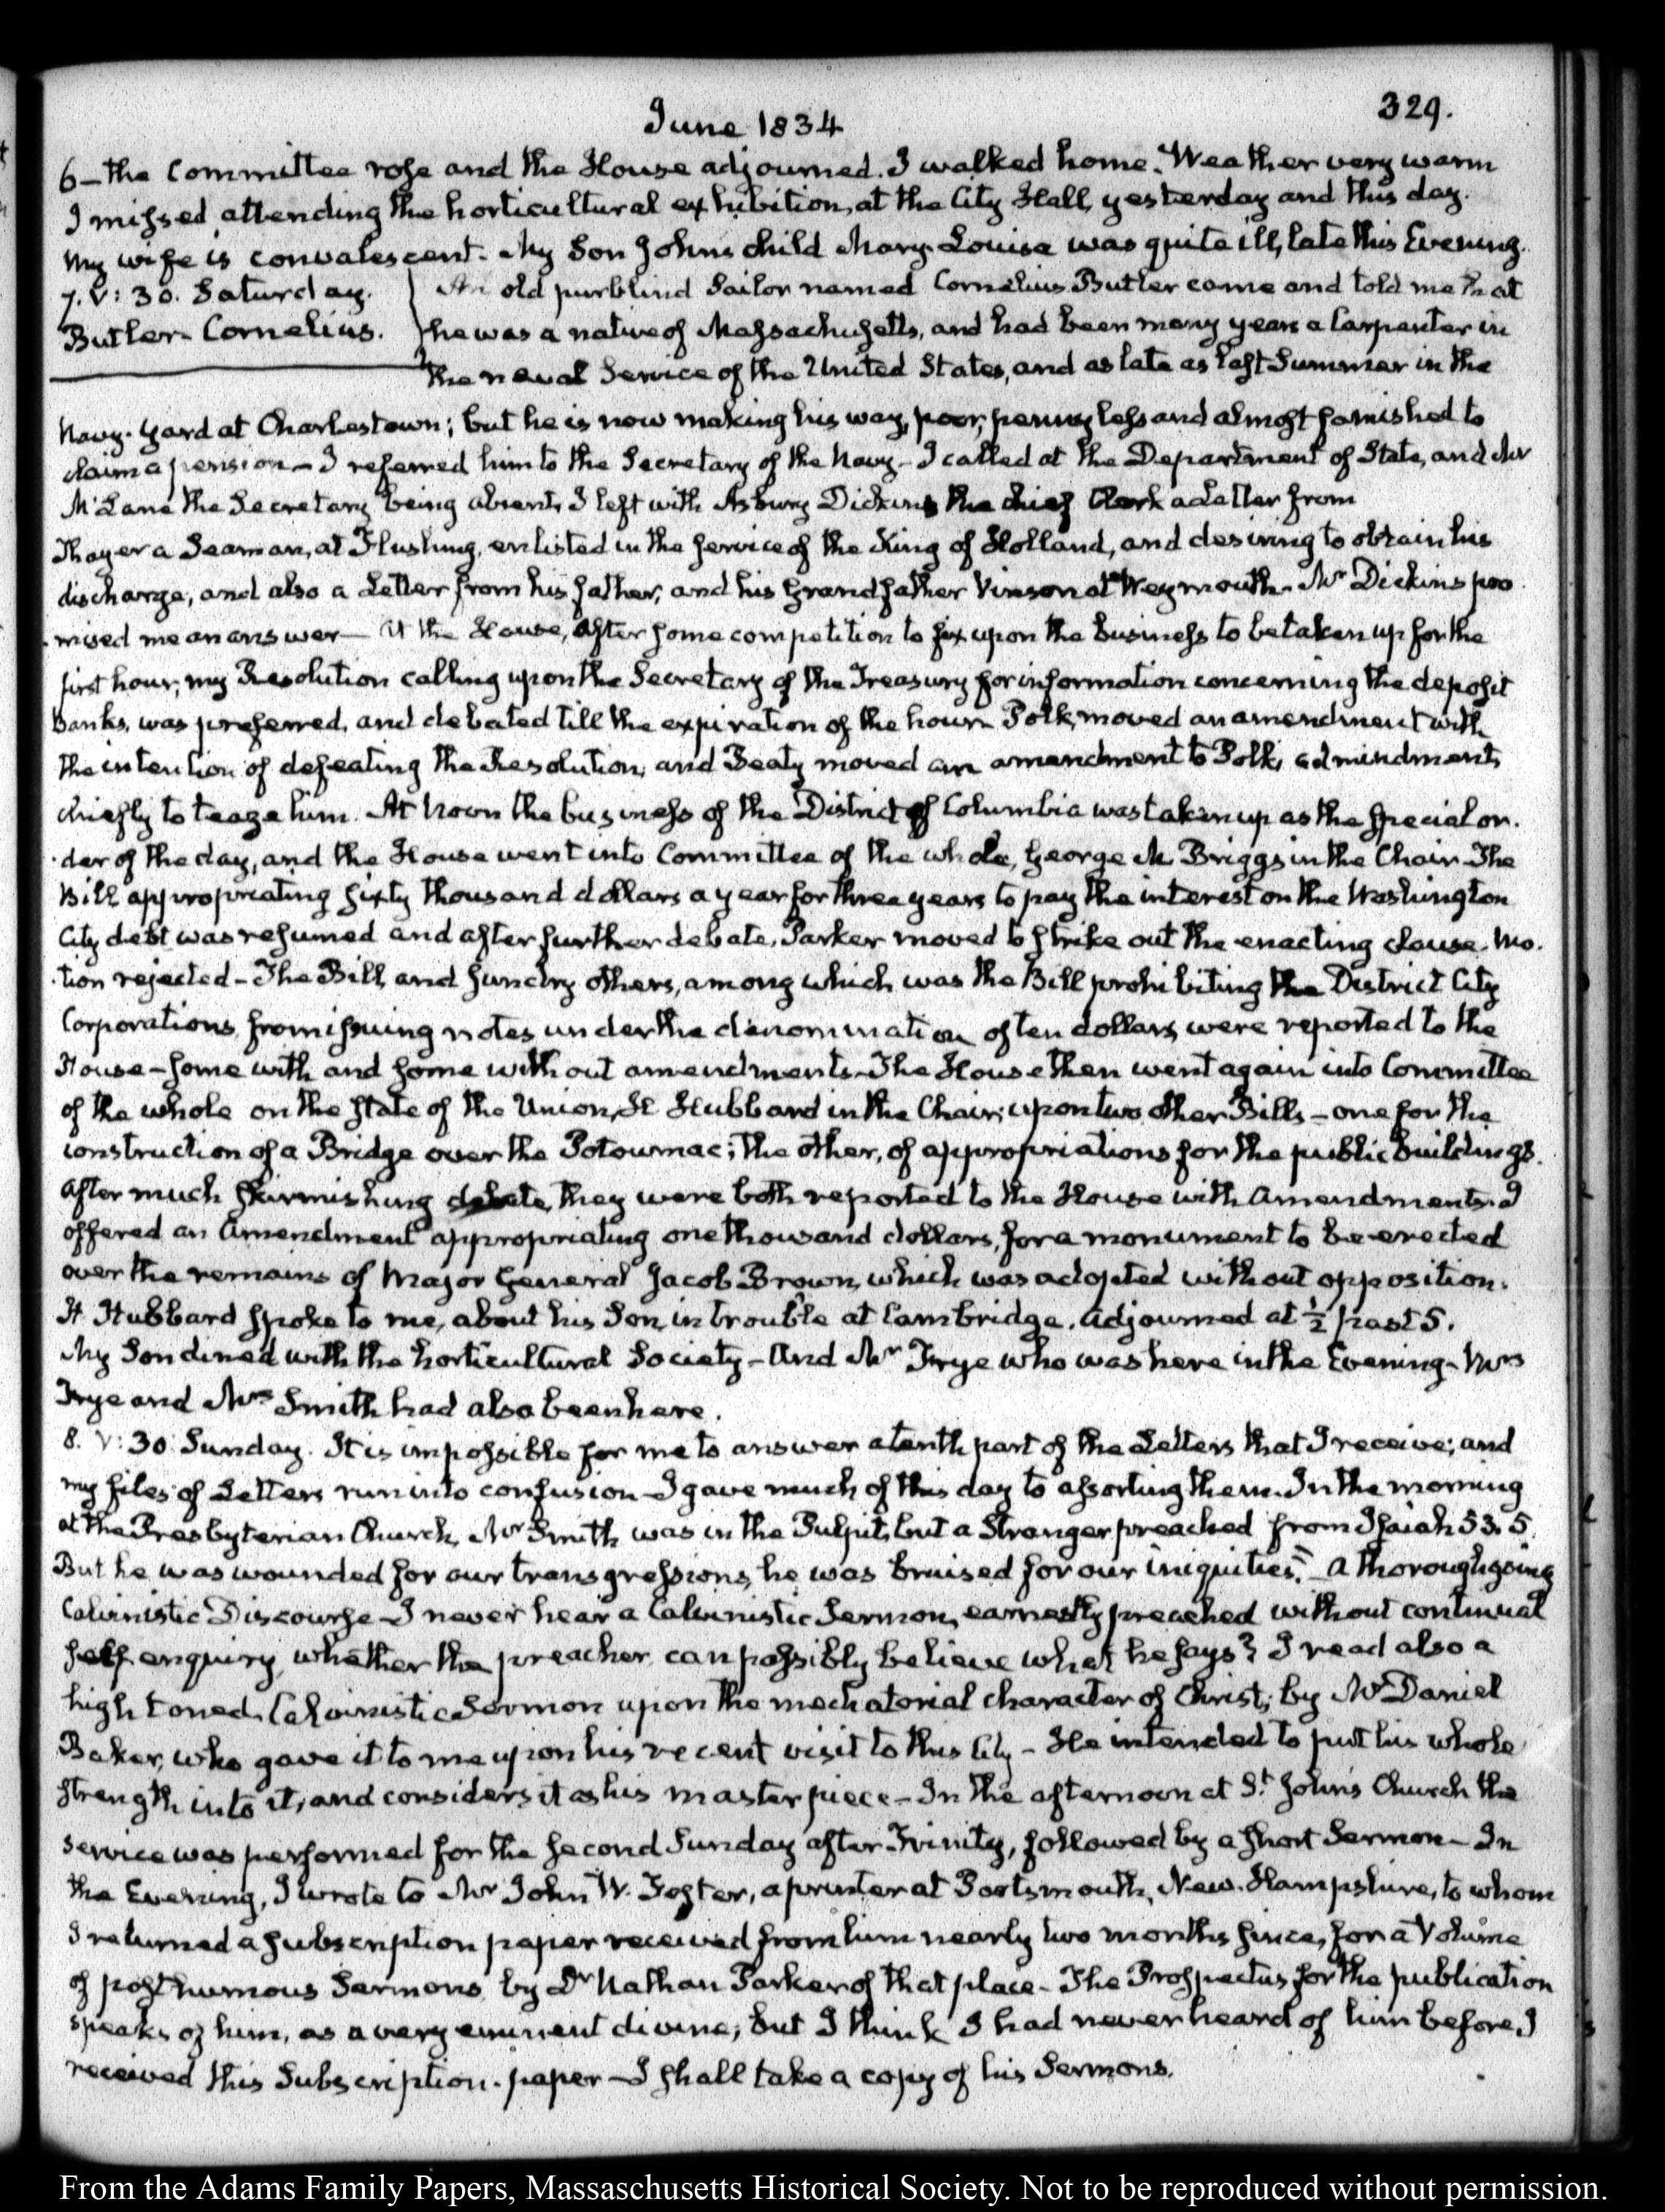 329.
June 1834
6 – the Committee rose and the House adjourned. I walked home. Weather very warm
I missed attending the horticultural exhibition, at the City Hall, yesterday and this day.
My wife is convalescent. My Son John's child Mary Louisa was quite ill, late this Evening.
7. V: 30. Saturday.
Butler Cornelius.
An old purblind Sailor named Cornelius Butler came and told me that
he was a native of Massachusetts, and had been many years a Carpenter in
the naval Service of the United States, and as late as last Summer in the
Navy-Yard at Charlestown; but he is now making his way, poor, pennyless and almost famished to
claim a pension – I referred him to the Secretary of the Navy – I called at the Department of State, and Mr
McLane the Secretary being absent, I left with Asbury Dickins the chief Clerk a Letter from
Thayer a Seaman, at Flushing, enlisted in the service of the King of Holland, and desiring to obtain his
discharge, and also a Letter from his father, and his Grandfather Vinson at Weymouth. Mr Dickins pro
mised me an answer – At the House, after some competition to fix upon the business to be taken up for the
first hour, my Resolution calling upon the Secretary of the Treasury for information concerning the deposit
banks, was preferred, and debated till the expiration of the hour. Polk moved an amendment with
the intention of defeating the Resolution, and Beaty moved an amendment to Polk's admindment,
chiefly to teaze him. At Noon the business of the District of Columbia was taken up as the special or-
der of the day, and the House went into Committee of the whole, George N. Briggs in the Chair. The
Bill appropriating sixty thousand dollars a year for three years to pay the interest on the Washington
City debt was resumed and after further debate, Parker moved to strike out the enacting clause. Mo-
tion rejected – The Bill, and sundry others, among which was the Bill prohibiting the District City
Corporations from issuing notes under the denomination of ten dollars, were reported to the
House – some with and some without amendments. The House then went again into Committee
of the whole on the state of the Union, H Hubbard in the Chair; upon two other Bills – one for the
construction of a Bridge over the Potowmac; the other, of appropriations for the public buildings.
After much skirmishing debate, they were both reported to the House with Amendments. I
offered an Amendment appropriating one thousand dollars, for a monument to be erected
over the remains of Major General Jacob Brown, which was adopted without opposition.
H Hubbard spoke to me, about his Son, in trouble at Cambridge. Adjourned at ½ past 5.
My Son dined with the horticultural Society – And Mr Frye who was here in the Evening – Mrs
Frye and Mrs Smith had also been here.
8. V: 30 Sunday. It is impossible for me to answer a tenth part of the Letters that I receive; and
my files of Letters run into confusion – I gave much of this day to assorting them. In the morning
at the Presbyterian Church, Mr Smith was in the Pulpit, but a Stranger preached from Isaiah 53. 5.
But he was wounded for our transgressions, he was bruised for our iniquities." A thorough going
Calvinistic Discourse – I never hear a Calvinistic Sermon, earnestly preached without continual
self enquiry, whether the preacher can possibly believe what he says? I read also a
high toned Calvinistic Sermon upon the mediatorial character of Christ; by Mr Daniel
Baker, who gave it to me upon his recent visit to this City – He intended to put his whole
strength into it, and considers it as his masterpiece – In the afternoon at St. John's Church the
service was performed for the second Sunday after Trinity, followed by a short Sermon – In
the Evening, I wrote to Mr John W. Foster, a printer at Portsmouth, New-Hampshire, to whom
I returned a subscription paper received from him nearly two months since, for a Volume
of posthumous Sermons by Dr Nathan Parker of that place – The Prospectus for the publication
speaks of him, as a very eminent divine; but I think I had never heard of him before I
received this Subscription-paper – I shall take a copy of his Sermons.
From the Adams Family Papers, Massachusetts Historical Society. Not to be reproduced without permission.